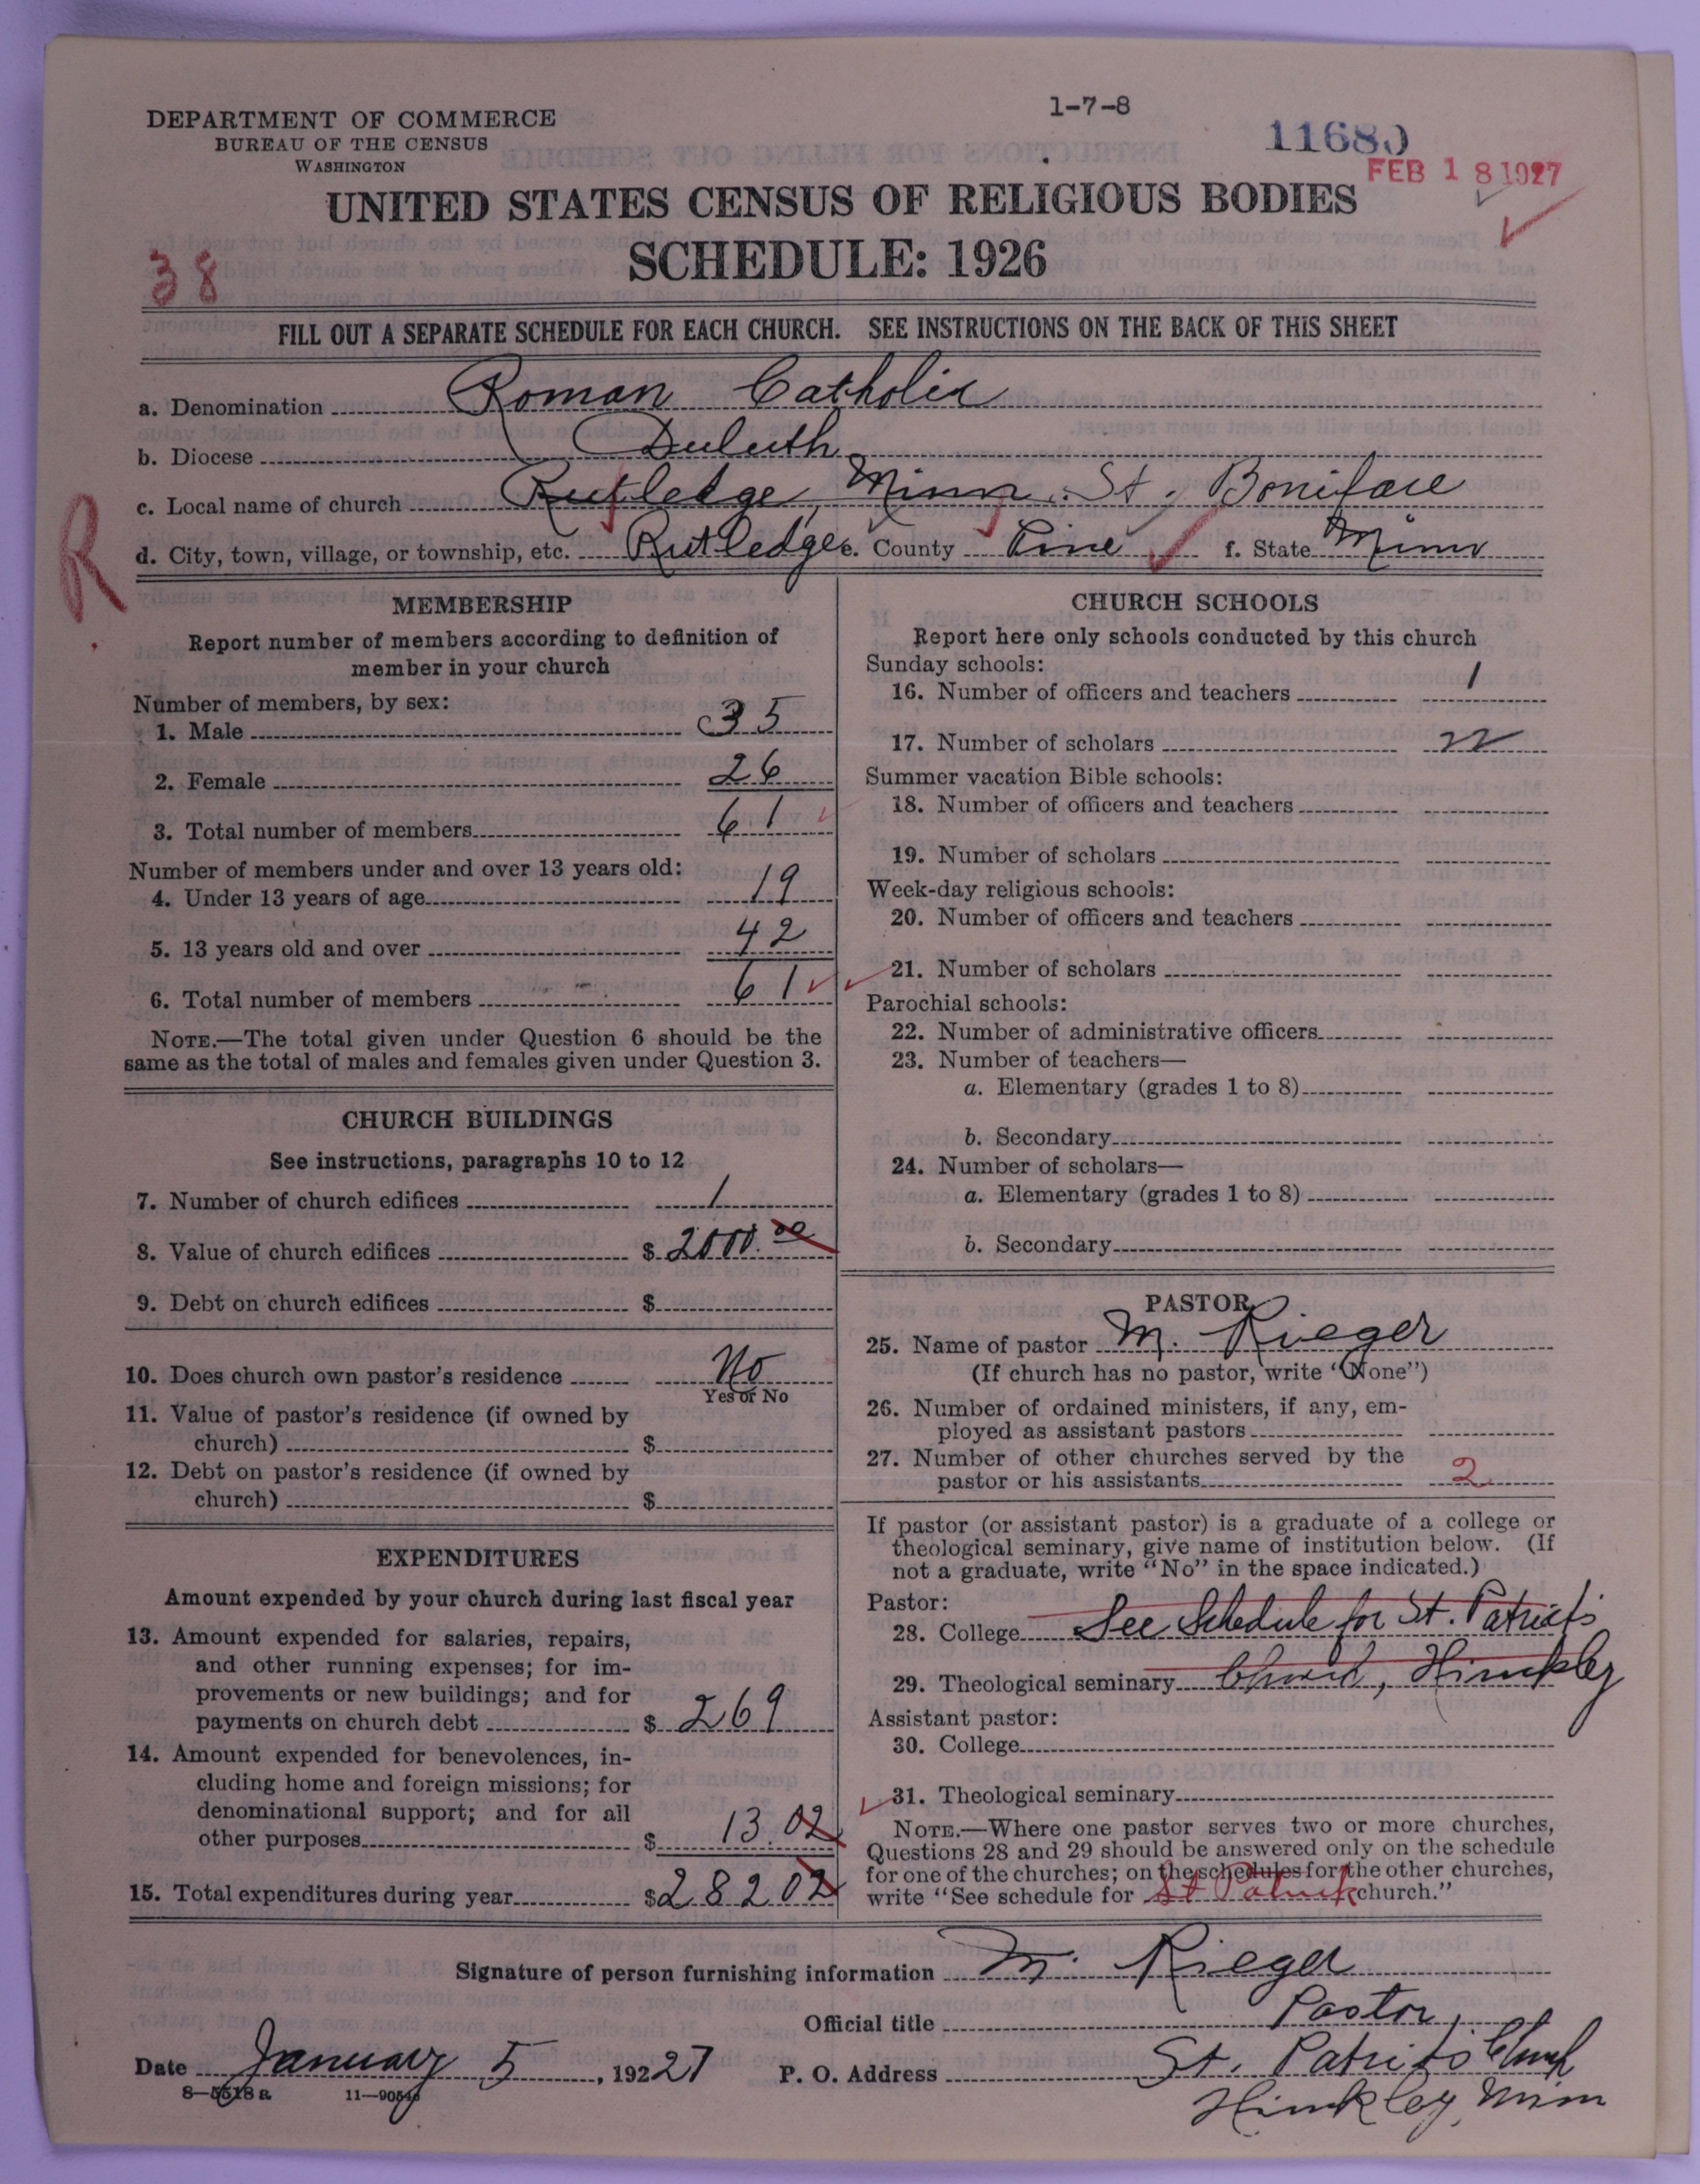 1-7-8
DEPARTMENT OF COMMERCE
BUREAU OF THE CENSUS
WASHINGTON
11680
FEB 18 1927
UNITED STATES CENSUS OF RELIGIOUS BODIES
SCHEDULE: 1926
38
FILL OUT A SEPARATE SCHEDULE FOR EACH CHURCH. SEE INSTRUCTIONS ON THE BACK OF THIS SHEET
a. Denomination Roman Catholic
b. Diocese Duluth
c. Local name of church Rutledge, Minn. St. Boniface
R
d. City, town, village, or township, etc. Rutledge e. County Pine f. State Minn
MEMBERSHIP
Report number of members according to definition of
member in your church
Number of members, by sex:
1. Male 35
2. Female 26
3. Total number of members 61
Number of members under and over 13 years old:
4. Under 13 years of age 19
5. 13 years old and over 42
6. Total number of members 61
NOTE.—The total given under Question 6 should be the
same as the total of males and females given under Question 3.
CHURCH BUILDINGS
See instructions, paragraphs 10 to 12
7. Number of church edifices 1
8. Value of church edifices $ 2000.00
9. Debt on church edifices $
10. Does church own pastor's residence No
Yes or No
11. Value of pastor's residence (if owned by
church) $
12. Debt on pastor's residence (if owned by
church) $
EXPENDITURES
Amount expended by your church during last fiscal year
13. Amount expended for salaries, repairs,
and other running expenses; for im-
provements or new buildings; and for
payments on church debt $ 269
14. Amount expended for benevolences, in-
cluding home and foreign missions; for
denominational support; and for all
other purposes $ 13.02
15. Total expenditures during year $ 282 02
CHURCH SCHOOLS
Report here only schools conducted by this church
Sunday schools:
16. Number of officers and teachers 1
17. Number of scholars 22
Summer vacation Bible schools:
18. Number of officers and teachers
19. Number of scholars
Week-day religious schools:
20. Number of officers and teachers
21. Number of scholars
Parochial schools:
22. Number of administrative officers
23. Number of teachers—
a. Elementary (grades 1 to 8)
b. Secondary
24. Number of scholars—
a. Elementary (grades 1 to 8)
b. Secondary
PASTOR
25. Name of pastor M. Rieger
(If church has no pastor, write "None")
26. Number of ordained ministers, if any, em-
ployed as assistant pastors
27. Number of other churches served by the
pastor or his assistants 2
If pastor (or assistant pastor) is a graduate of a college or
theological seminary, give name of institution below. (If
not a graduate, write "No" in the space indicated.)
Pastor:
28. College See Schedule for St. Patrick's
29. Theological seminary Church, Hinckley
Assistant pastor:
30. College
31. Theological seminary
NOTE.—Where one pastor serves two or more churches,
Questions 28 and 29 should be answered only on the schedule
for one of the churches; on the schedules for the other churches,
write "See schedule for St Patrick church."
Signature of person furnishing information M. Rieger
Official title Pastor,
Date January 5, 19227 P. O. Address St. Patrick's Church
Hinckley, Minn
8—5518 a 11—9054